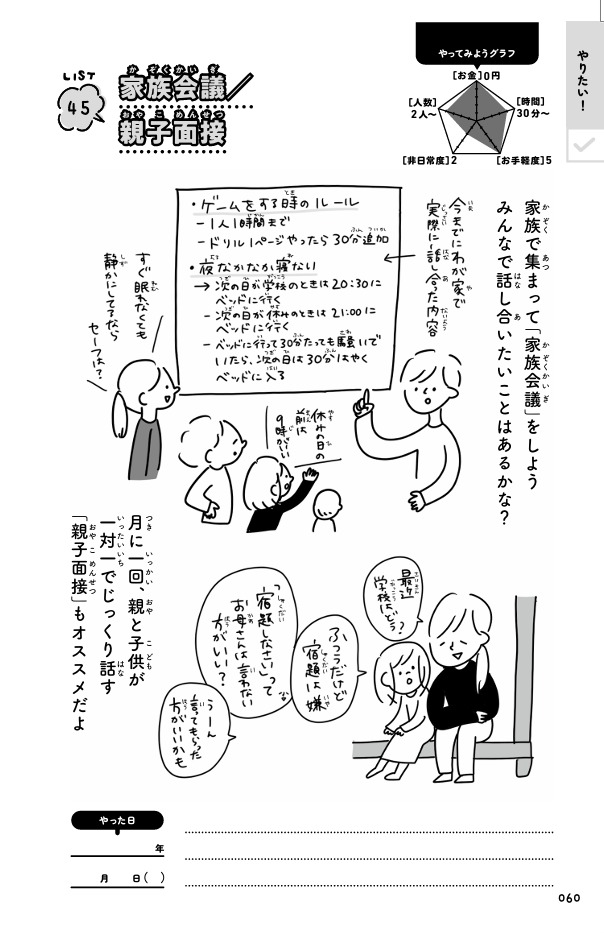 やりたい!
やってみようグラフ
[お金]0円
[時間]30分〜
[お手軽度]5
[非日常度]2
[人数]2人〜
LIST
45
家族会議/
親子面接
家族で集まって「家族会議」をしよう
みんなで話し合いたいことはあるかな?
今までにわが家で
実際に話し合った内容
・ゲームをする時のルール
- 1人1時間まで
- ドリル1ページやったら30分追加
・夜なかなか寝ない
→ 次の日が学校のときは20:30に
ベッドに行く
- 次の日が休みのときは21:00に
ベッドに行く
- ベッドに行って30分たっても騒いで
いたら、次の日は30分はやく
ベッドに入る
すぐ眠れなくても
静かにしてるなら
セーフは?
休みの日の
前は
9時がいい
月に一回、親と子供が
一対一でじっくり話す
「親子面接」もオススメだよ
最近
学校はどう?
ふつう、だけど
宿題は嫌
「宿題しなさい」って
お母さんは言わない
方がいい?
うーん
言ってもらった
方がいいかも
やった日
年
月 日( )
060